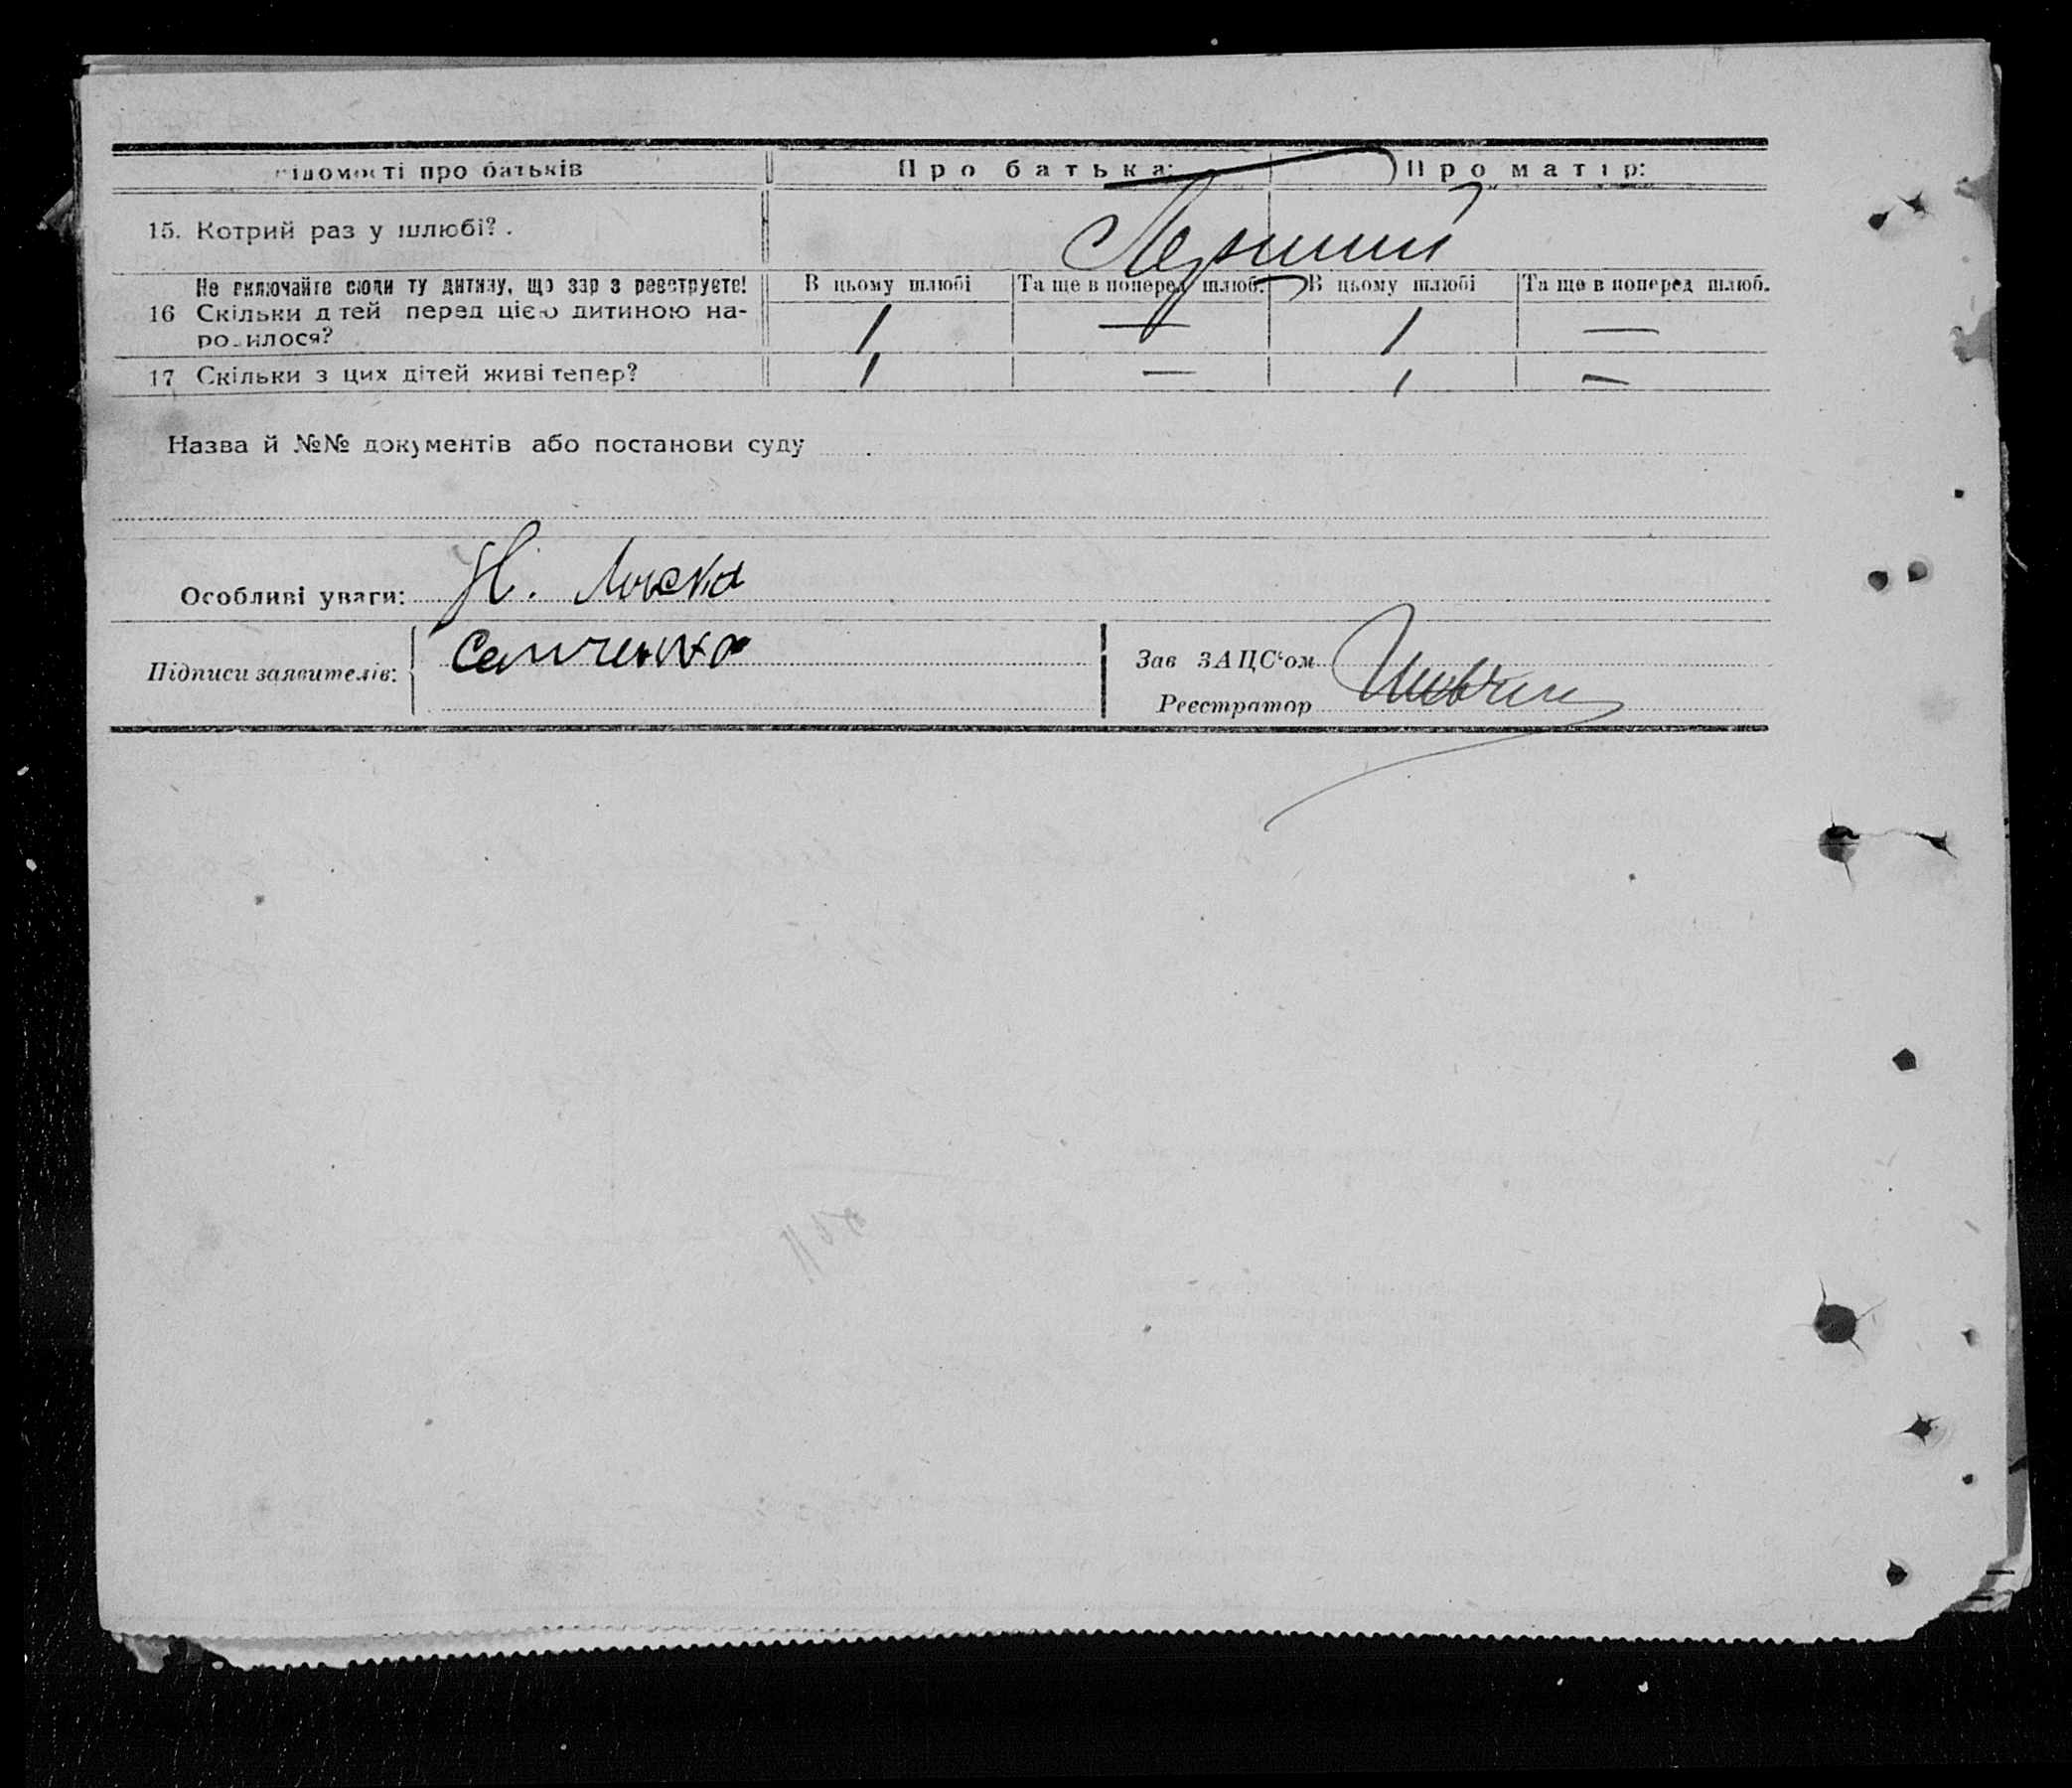 ідомості про батьків Про батька: Про матір:
15. Котрий раз у шлюбі? . Перший
Не включайте сюди ту дитину, що зар з реєструєте! В цьому шлюбі Та ще в поперед шлюб. В цьому шлюбі Та ще в поперед шлюб.
16 Скільки д тей перед цією дитиною на-
родилося? 1 — 1 —
17 Скільки з цих дітей живі тепер? 1 — 1 —
Назва й №№ документів або постанови суду
Особливі уваги: Н.
Підписи заявителів: Семченко
Зав ЗАЦС‘ом
Реєстратор